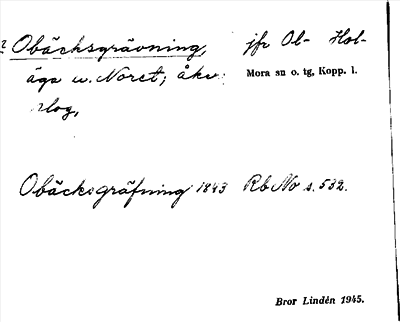 ? Obäcksgrävning, jfr Ol- Hol-
äga u. Noret; åker
Mora sn o. tg, Kopp. l.
Obäcksgräfning 1843 Rb No s. 532.
Bror Lindén 1945.